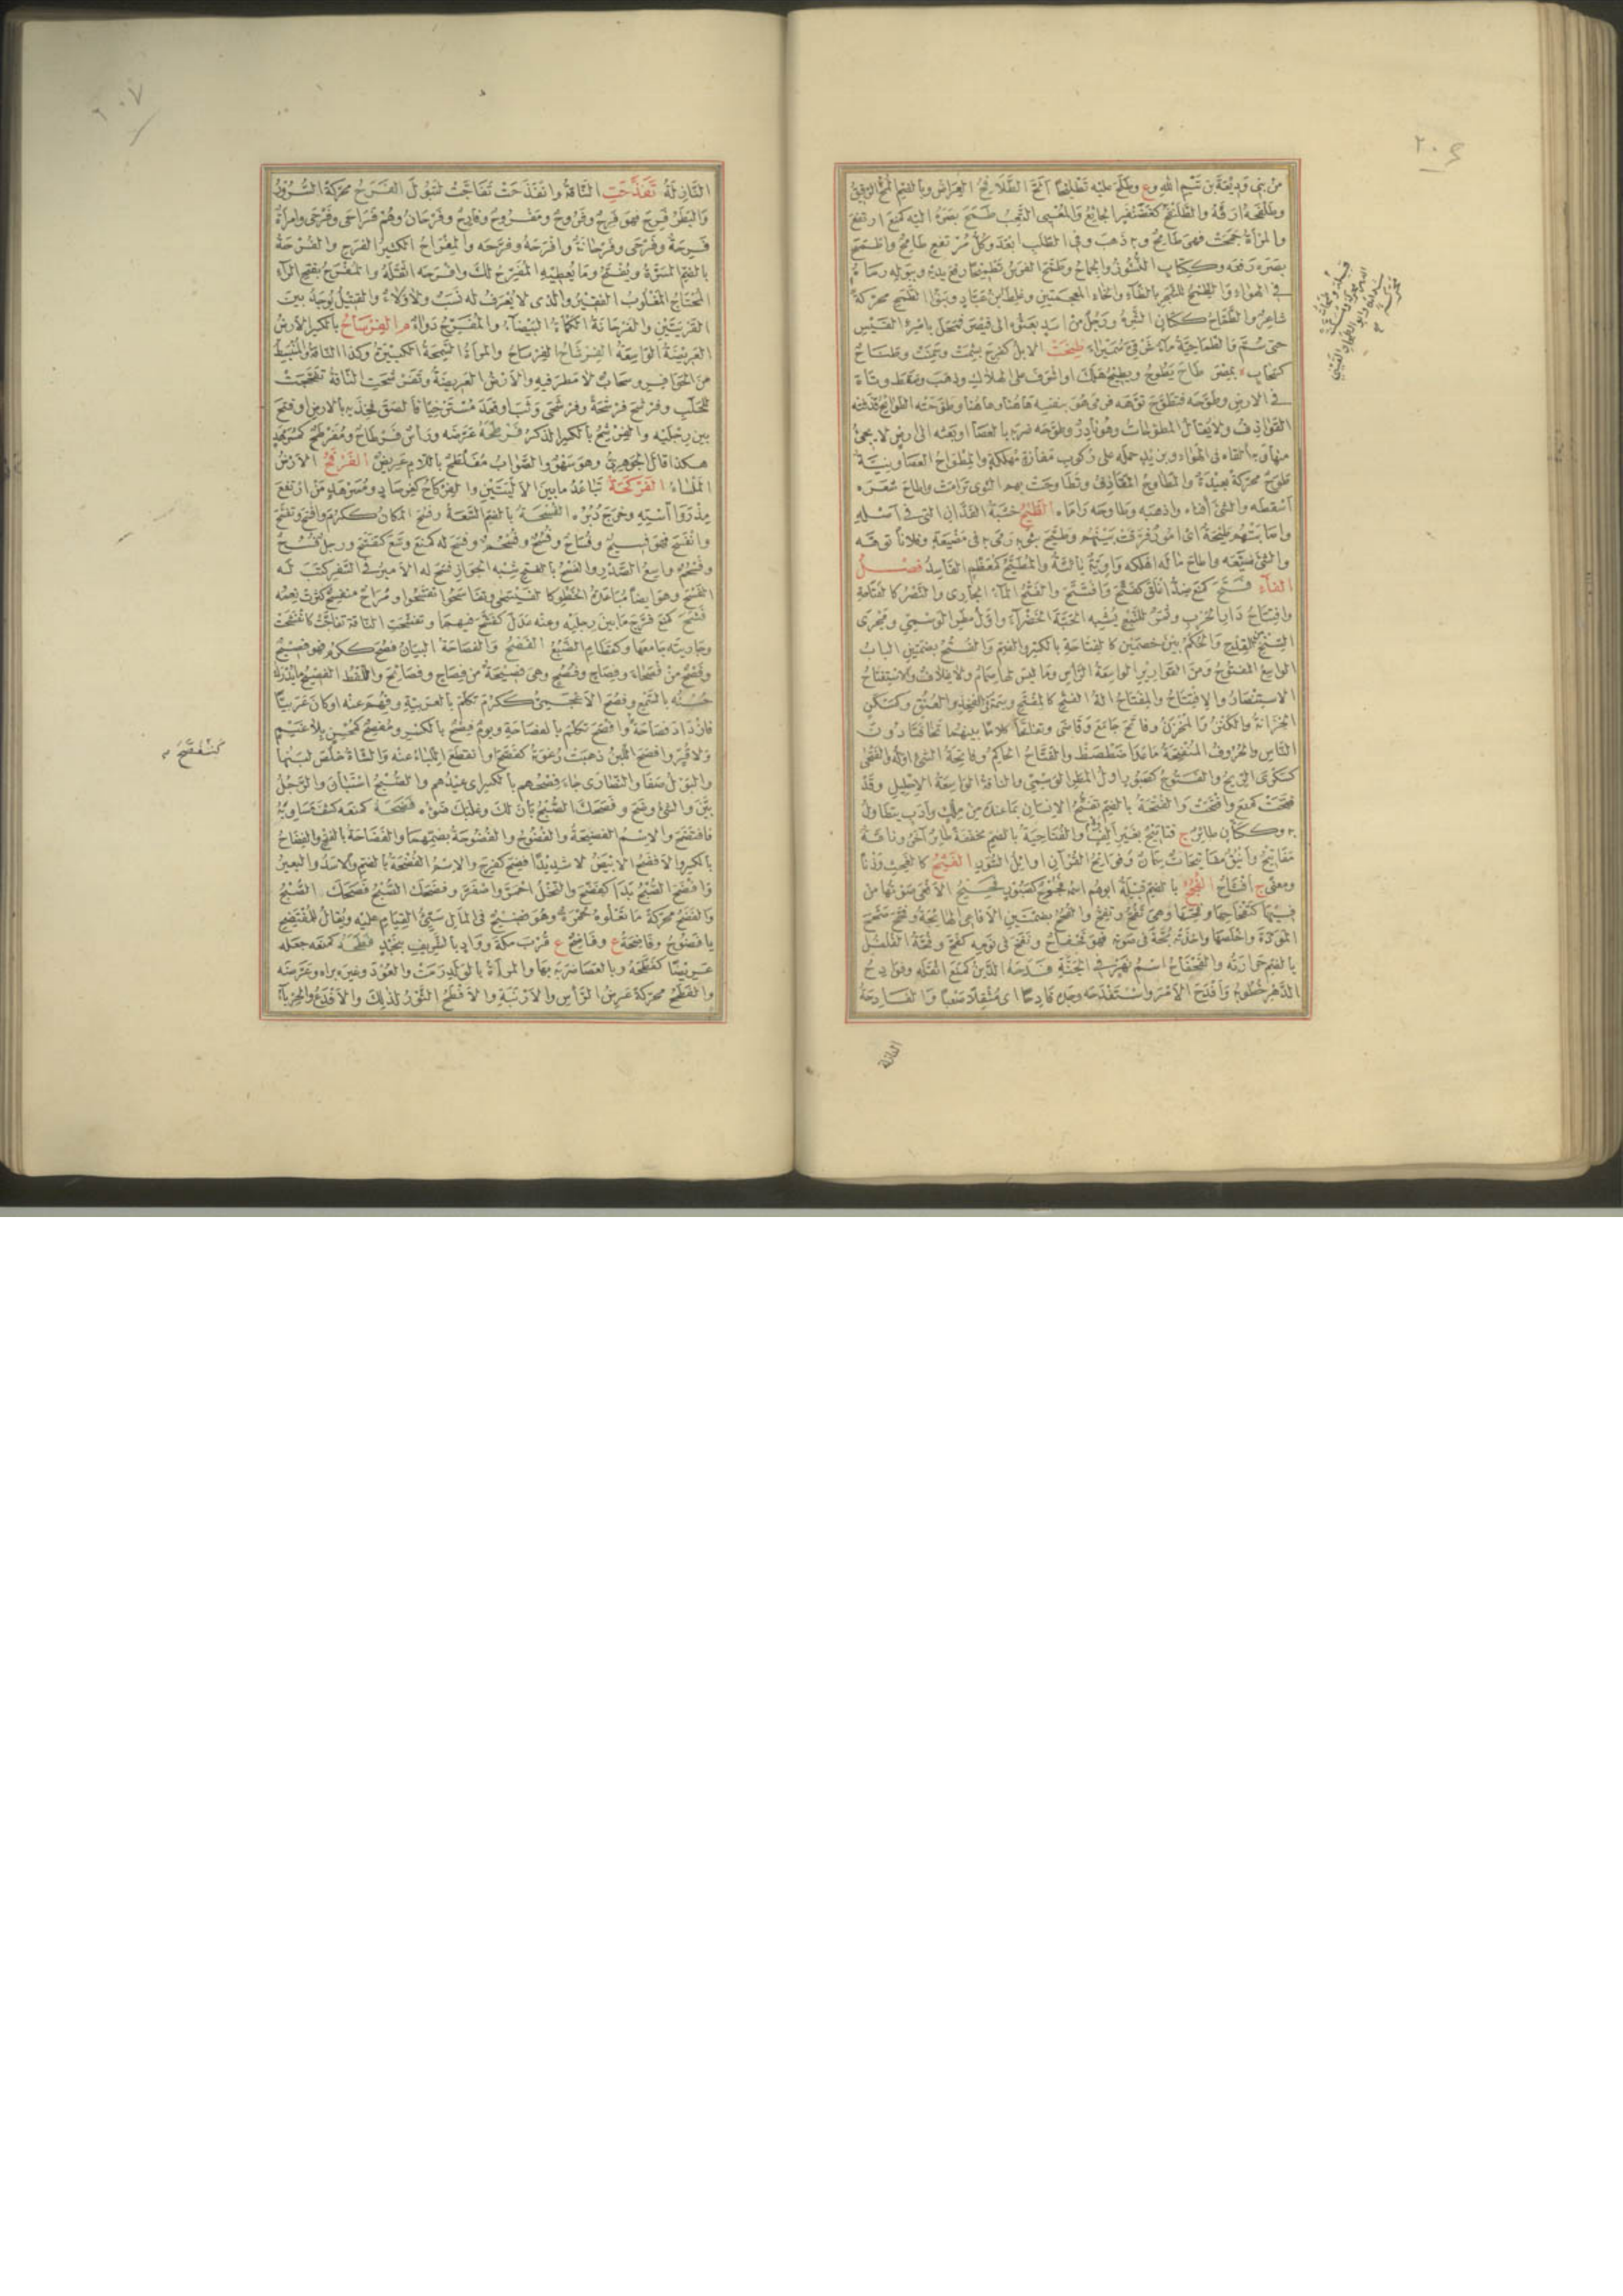 من بني وديعة بن تيم الله وع وطلح عليه تطليحا الح
وطلفحه ارقه والطلنفح كغضنفر الجائع والمعيي التعب طمح بصره اليه كمنع ارتفع
والمرأة جمحت فهي طامح و به ذهب وفي الطلب ابعد وكل مرتفع طامح واطمح
بصره رفعه وككتاب النشوز والجماح وطمح الفرس تطميحا رفع يديه وببوله رماه
في الهواء
شاعر والطماح ككتان الشره ورجل من اسد بعثوه الى قيصر فمحل بامرئ القيس
حتى سم والطماحية ماء شرقي سميراء طنحت الابل كفرح بشمت وسمنت
طاح يطوح ويطيح هلك او اشرف على الهلاك وذهب وسقط وتاه
في الارض وطوحه فتطوح توهه فرمى هو بنفسه هاهنا وهاهنا وطوحته الطوائح قذفته
القواذف ولا يقال المطوحات وهو نادر وطوحه ضربه بالعصا او بعثه الى ارض لا يجيء
منها و به القاه في الهواء وبزيد حمله على ركوب مفازة مهلكة والمطواح العصا ونية
طوح محركة بعيدة والمطاوح المقاذف وتطاوحت بهم النوى ترامت واطاح شعره
اسقطه والشيء افناه واذهبه وطاوحه راماه الطيح خشبة الفدان التي في اسفله
واصابتهم طيحة اي امور فرقت بينهم وطيح بثوبه رمى به في مضيعة وفلانا توهه
والشيء ضيعه واطاح ماله اهلكه واوية يائية والمطيح كمعظم الفاسد فصل
الفاء فتح كمنع ضد اغلق كفتح وافتتح والفتح الماء الجاري والنصر كالفتاحة
وافتتاح دار الحرب وثمر للنبع يشبه الحبة الخضراء واول مطر الوسمي ومجرى
السنخ من القدح والحكم بين خصمين كالفتاحة بالكسر والضم والفتح بضمتين الباب
الواسع المفتوح ومن القوارير الواسعة الرأس وما ليس لها صمام ولا غلاف والاستفتاح
الاستنصار والافتتاح والمفتاح آلة الفتح كالمفتح وسمة في الفخذ والعنق وكمسكن
الخزانة والكنز والمخزن وفاتح جامع وقاضى وتفاتحا كلاما بينهما تخافتا دون
الناس والحروف المنفتحة ما عدا ضطصظ والفتاح الحاكم وفاتحة الشيء اوله والفتحى
كسكرى الريح والفتوح كصبور اول المطر الوسمي والناقة الواسعة الاحليل وقد
فتحت كمنع وافتحت والفتحة بالضم تفتح الانسان بما عنده من ملك وادب يتطاول
به وككتان طائر ج فتاتيح بغير الف ولام والفتاحية بالضم مخففة طائر آخر وناقة
مفاتيح واينق مفاتيحات سمان وفواتح القرآن اوائل السور الفثح كالفحث وزنا
ومعنى ج افثاح الفجح بالضم قبيلة ابوهم اسمه فجوح كصبور فحيح الافعى صوتها من
فيها كتفحاحها وفحها وهي تفح وتفح والفحح بضمتين الافاعي الهائجة وفحح صحح
المودة واخلصها واخذته بحة في صوته فهو فحفاح ونفخ في نومه كفح وفحة الفلفل
بالضم حرارته والفحفاح اسم نهر في الجنة فدحه الدين كمنع اثقله وفوادح
الدهر خطوبه وافدح الامر واستفدحه وجده فادحا اي مثقلا صعبا والفادحة
النازلة
النازلة تفذحت الناقة وانفذحت تفاجت لتبول الفرح محركة السرور
والبطر فرح فهو فرح وفروح ومفروح وفارح وفرحان وهم فراحى وفرحى وامرأة
فرحة وفرحى وفرحانة وافرحه وفرحه والمفراح الكثير الفرح والفرحة
بالضم المسرة ويفتح وما يعطيه المفرح لك وافرحه اثقله والمفرح بفتح الراء
المحتاج المغلوب الفقير والذي لا يعرف له نسب ولا ولاء والقتيل يوجد بين
القريتين والفرحانة الكمأة البيضاء والمفرح دواء م الفرساح بالكسر الارض
العريضة الواسعة الفرشاح الفرساح والمرأة السمجة الكبيرة وكذا الناقة والمنبسط
من الحوافر وسحاب لا مطر فيه والارض العريضة وتفرشحت الناقة تفحجت
للحلب وفرشح فرشحة وفرشحى وثب او قعد مسترخيا فالصق فخذيه بالارض او فتح
بين رجليه والفرشح بالكسر الذكر فرطحه عرضه ورأس فرطاح ومفرطح كمسرهد
هكذا قال الجوهري وهو سهو والصواب مفلطح باللام عريض الفرقح الارض
الملساء الفركحة تباعد ما بين الاليتين والفركاح كفرساح ومسرهد من ارتفع
مذروا استه وخرج دبره الفسحة بالضم السعة وفسح المكان ككرم وافسح وتفسح
وانفسح فهو فسيح وفساح وفسح وفسحم وفسح له كمنع وسع كفسح ورجل فسح
وفسحم واسع الصدر والفسح بالفتح شبه الجواز فسح له الامير في السفر كتب له
الفسح وهو ايضا مباعدة الخطو كالفيسحى وتفاسحوا تفسحوا ومراح منفسح كثرت نعمه
فشح كمنع فرج ما بين رجليه وعنه عدل كفشح فيهما وتفشحت الناقة تفاجت كانفشحت
وجاريته جامعها وكقطام الضبع الفصح والفصاحة البيان فصح ككرم فهو فصيح
وفصح من فصحاء وفصاح وفصح وهي فصيحة من فصاح وفصائح واللفظ الفصيح ما يدرك
حسنه بالسمع وفصح الاعجمي ككرم تكلم بالعربية وفهم عنه او كان عربيا
فازداد فصاحة وافصح تكلم بالفصاحة ويوم فصح بالكسر ومفصح كمحسن بلا غيم
ولا قر وافصح اللبن ذهبت رغوته كفصح او انقطع اللباء عنه والشاة خلص لبنها
والبول صفا والنصارى جاء فصحهم بالكسر اي عيدهم والصبح استبان والرجل
بين والشيء وضح وفصحك الصبح بان لك وغلبك ضوءه فضحه كمنعه كشف مساويه
فافتضح والاسم الفضيحة والفضوح والفضوحة بضمهما والفضاحة بالفتح والفضاح
بالكسر والافضح الابيض لا شديدا فضح كفرح والاسم الفضحة بالضم والاسد والبعير
وافضح الصبح بدا كفضح والنخل احمر واصفر وفضحك الصبح فصحك الصبح
والفضح محركة ما تعلوه حمرة وهو فضيح في المال سيئ القيام عليه ويقال للمفتضح
يا فضوح وفاضحة ع وفاضح ع قرب مكة وواد بالشريف بنجد فطحه كمنعه جعله
عريضا كفطحه وبالعصا ضربه بها والمرأة بالولد رمت والعود وغيره براه وعرضه
والفطح محركة عرض الرأس والارنبة والافطح الثور لذلك والافدع والحرباء